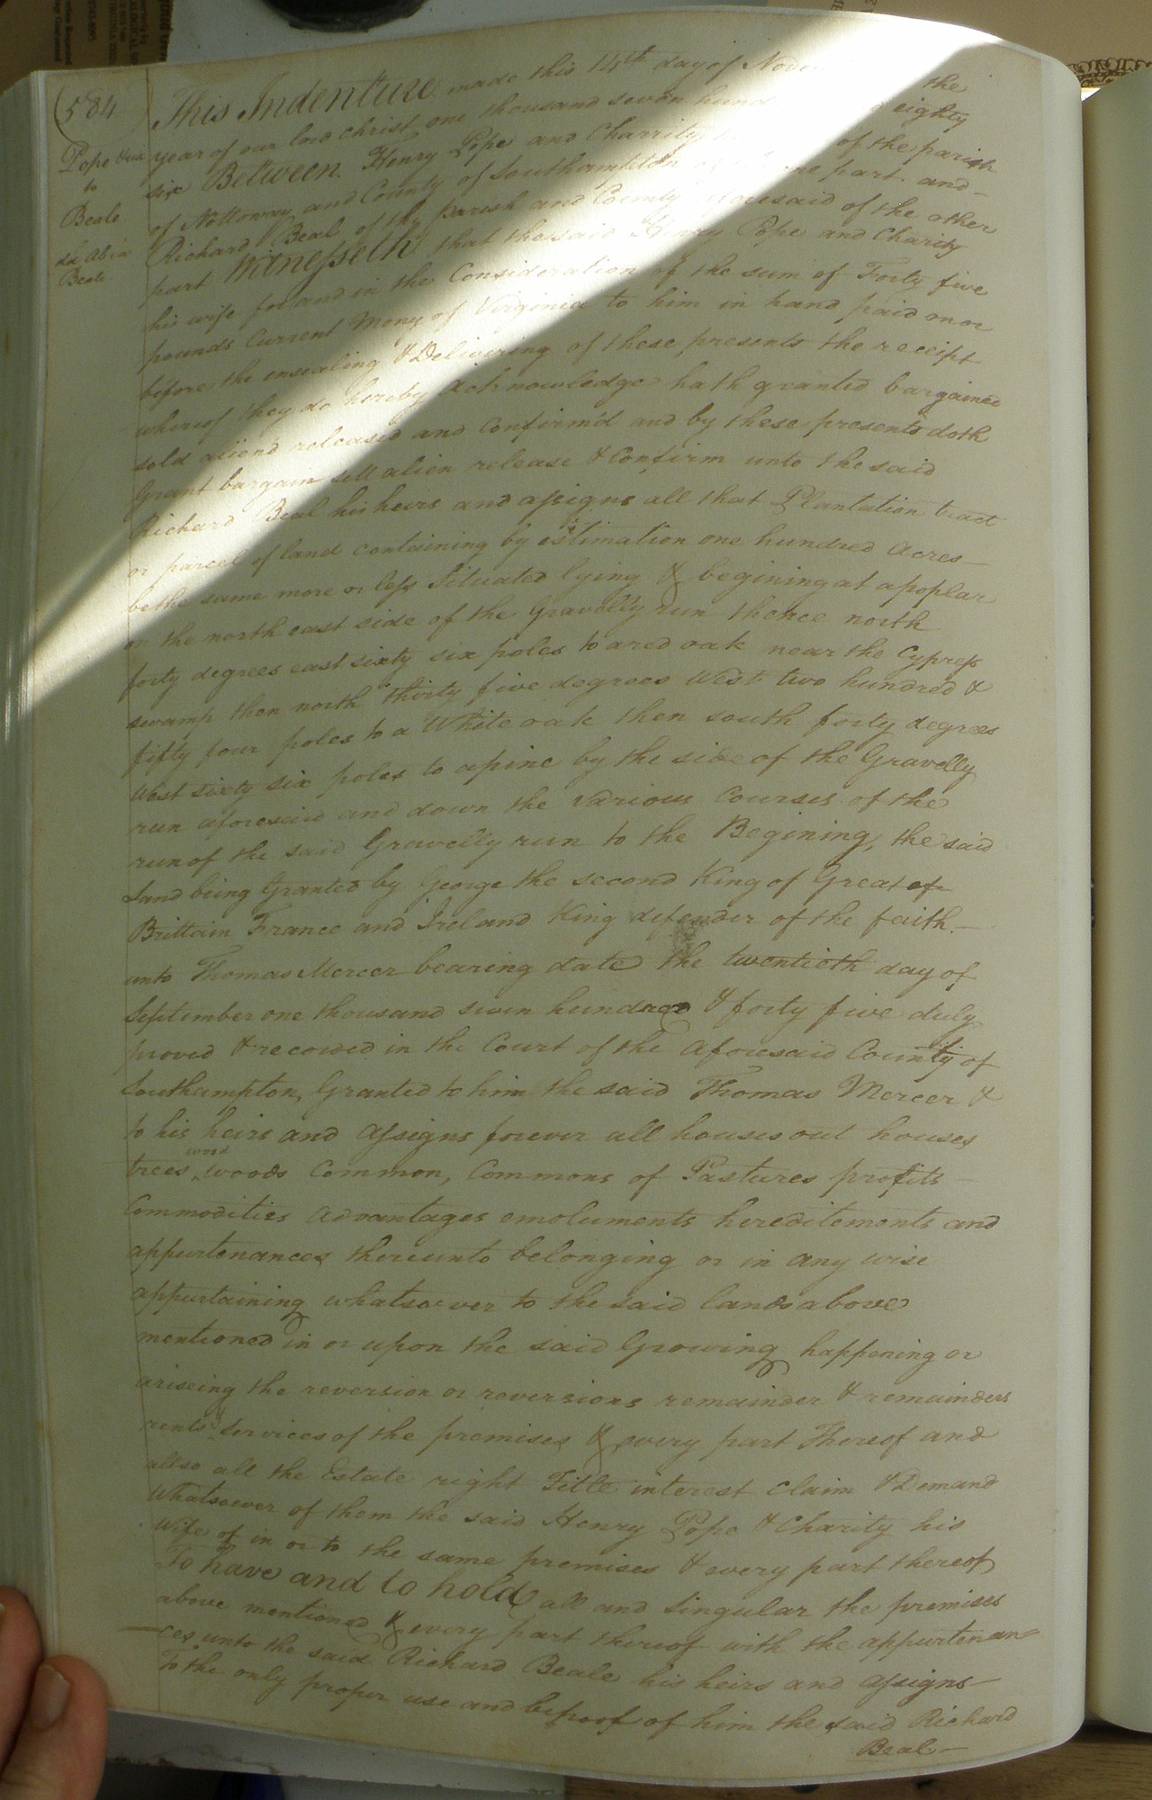 (584
Pope &ux
to
Beale
Beale
This Indenture made this 14th day of Nove the
year of our lord christ one thousand seven hund eighty
six Between Henry Pope and Charrity of the parish
of Nottoway and County of Southampton one part and
Richard Beal of the parish and County aforesaid of the other
part Witnesseth that the said Henry Pope and Charity
his wife for and in the Consideration of the sum of Forty five
pounds Current Mony of Virginia to him in hand paid on or
before the ensealing & Delivering of these presents the receipt
whereof they do hereby acknowledge hath granted bargained
sold aliend released and Confirm'd and by these presents doth
Grant bargain sell alien release & Confirm unto the said
Richard Beal his heirs and assigns all that Plantation tract
or parcel of land containing by estimation one hundred Acres
be the same more or less Situated lying & begining at a poplar
on the north east side of the Gravelly run thence north
forty degrees east sixty six poles to a red oak near the Cypress
swamp then north thirty five degrees West two hundred &
fifty four poles to a White oak then south forty degrees
West sixty six poles to a pine by the side of the Gravelly
run aforesaid and down the various Courses of the
run of the said Gravelly run to the Begining, the said
Land being Granted by George the second King of Great of
Brittain France and Ireland King defender of the faith.
unto Thomas Mercer bearing date the twentieth day of
September one thousand seven hundred & forty five duly
proved & recorded in the Court of the Aforesaid County of
Southampton, Granted to him the said Thomas Mercer &
to his heirs and assigns forever all houses out houses
trees, wood woods Common, Commons of Pastures profits
Commodities Advantages emoluments hereditements and
appurtenances thereunto belonging or in any wise
appurtaining whatsoever to the said lands above
mentioned in or upon the said Growing happening or
ariseing the reversion or reversions remainder & remainders
rents & Services of the premises & every part Thereof and
allso all the Estate right Title interest Claim & Demand
Whatsoever of them the said Henry Pope & Charity his
Wife of in or to the same premises & every part thereof
To have and to hold all and Singular the premises
above mentioned & every part thereof with the appurtenan=
ces unto the said Richard Beale his heirs and Assigns
To the only proper use and behoof of him the said Richard
Beal